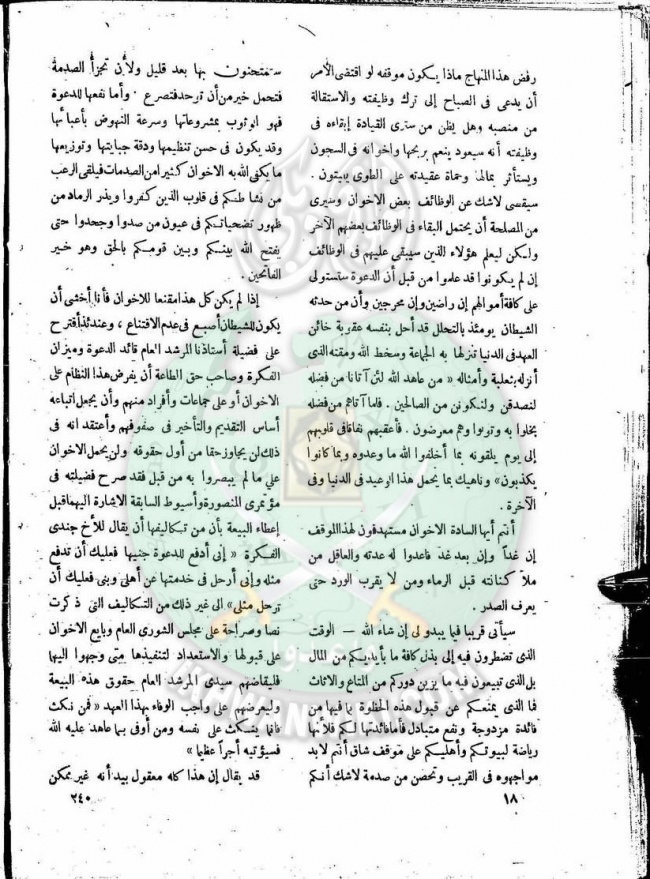 رفض هذا المنهاج ماذا يكون موقفه لو اقتضى الأمر
أن يدعى فى الصباح إلى ترك وظيفته والاستقالة
من منصبه وهل يظن من سترى القيادة إبقاءه فى
وظيفته أنه سيعود ينعم بريحها واخوانه فى السجون
ويستأثر بمالها وحماة عقيدته على الطوى يبيتون .
سيقصى لاشك عن الوظائف بعض الاخوان وسنرى
من المصلحة أن يحتمل البقاء فى الوظائف بعضهم الآخر
ولكن ليعلم هؤلاء الذين سيبقى عليهم فى الوظائف
إن لم يكونوا قد علموا من قبل أن الدعوة ستستولى
على كافة أموالهم إن راضين وإن محرجين وأن من حدثه
الشيطان يومئذ بالتحلل قد أحل بنفسه عقوبة خائن
العهد فى الدنيا تنزلها به الجماعة وسخط الله ومقته الذى
أنزله بثعلبة وأمثاله « من عاهد الله لئن آتانا من فضله
لنصدقن ولنكونن من الصالحين . فلما آتاهم من فضله
بخلوا به وتولوا وهم معرضون . فأعقبهم نفاقا فى قلوبهم
إلى يوم يلقونه بما أخلفوا الله ما وعدوه وبما كانوا
يكذبون » وناهيك بما يحمل هذا الوعيد فى الدنيا وفى
الآخرة .
أنتم أيها السادة الاخوان مستهدفون لهذا الموقف
إن غداً وإن بعد غد فاعدوا له عدته والعاقل من
ملأ كنانته قبل الرماء ومن لا يقرب الورد حتى
يعرف الصدر .
سيأتى قريبا فيما يبدو لى إن شاء الله — الوقت
الذى تضطرون فيه إلى بذل كافة ما بأيديكم من المال
بل الذى تبيعون فيه ما يزين دوركم من المتاع والاثاث
فما الذى يمنعكم عن قبول هذه الخطوة بما فيها من
فائدة مزدوجة ونفع متبادل فأما فائدتها لكم فلأنها
رياضة لبيوتكم وأهليكم على موقف شاق أنتم لابد
مواجهوه فى القريب وتحصن من صدمة لاشك أنكم
١٨
ستمتحنون بها بعد قليل ولأن تجزأ الصدمة
فتحمل خير من أن توحد فتصرع . وأما نفعها للدعوة
فهو الوثوب بمشروعاتها وسرعة النهوض بأعبائها
وقد يكون فى حسن تنظيمها ودقة جبايتها وتوزيعها
ما يكفى الله به الاخوان كثير من الصدمات فيلقى الرعب
من نشاطكم فى قلوب الذين كفروا ويذر الرماد من
ظهور تضحياتكم فى عيون من صدوا وجحدوا حتى
يفتح الله بينكم وبين قومكم بالحق وهو خير
الفاتحين .
إذا لم يكن كل هذا مقنعا للاخوان فأنا أخشى أن
يكون للشيطان أصبع فى عدم الاقتناع ، وعندئذ أقترح
على فضيلة أستاذنا المرشد العام قائد الدعوة وميزان
الفكرة وصاحب حق الطاعة أن يفرض هذا النظام على
الاخوان أو على جماعات وأفراد منهم وأن يجعل اتباعه
أساس التقديم والتأخير فى صفوفهم وأعتقد انه فى
ذلك لن يجاوز حقا من أول حقوقه ولن يحمل الاخوان
على ما لم يبصروا به من قبل فقد صرح فضيلته فى
مؤتمرى المنصورة وأسيوط السابقة الاشارة اليهما قبل
إعطاء البيعة بأن من تكاليفها أن يقال للأخ جندى
الفكرة « إنى أدفع للدعوة جنيها فعليك أن تدفع
مثله وإنى أرحل فى خدمتها عن أهلى وبنى فعليك أن
ترحل مثلى » الى غير ذلك من التكاليف التى ذكرت
نصا وصراحة على مجلس الشورى العام وبايع الاخوان
على قبولها والاستعداد لتنفيذها متى وجهوا اليها
فليقاضهم سيدى المرشد العام حقوق هذه البيعة
وليعرضهم على واجب الوفاء بهذا العهد « فمن نكث
فانما ينكث على نفسه ومن أوفى بما عاهد عليه الله
فسيؤتيه أجراً عظيما »
قد يقال إن هذا كله معقول بيد أنه غير ممكن
٢٤٠